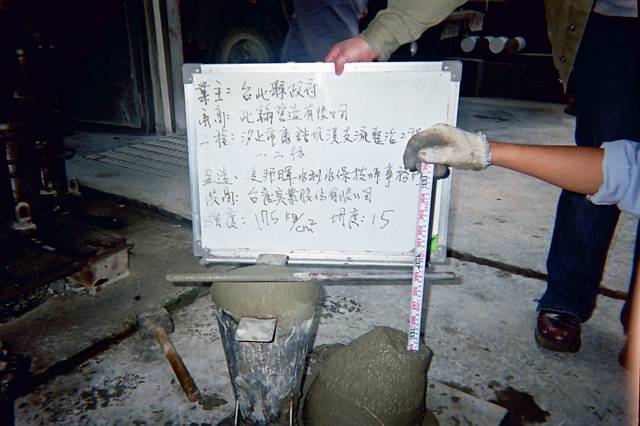 業主: 台北縣政府
承商: 北翰營造有限公司
工程: 汐止市康誥坑溪支流整治工程
二工標
監造: 水利水保技師事務所
廠商: 台龍實業股份有限公司
強度: 175 kg/cm² 坍度: 15